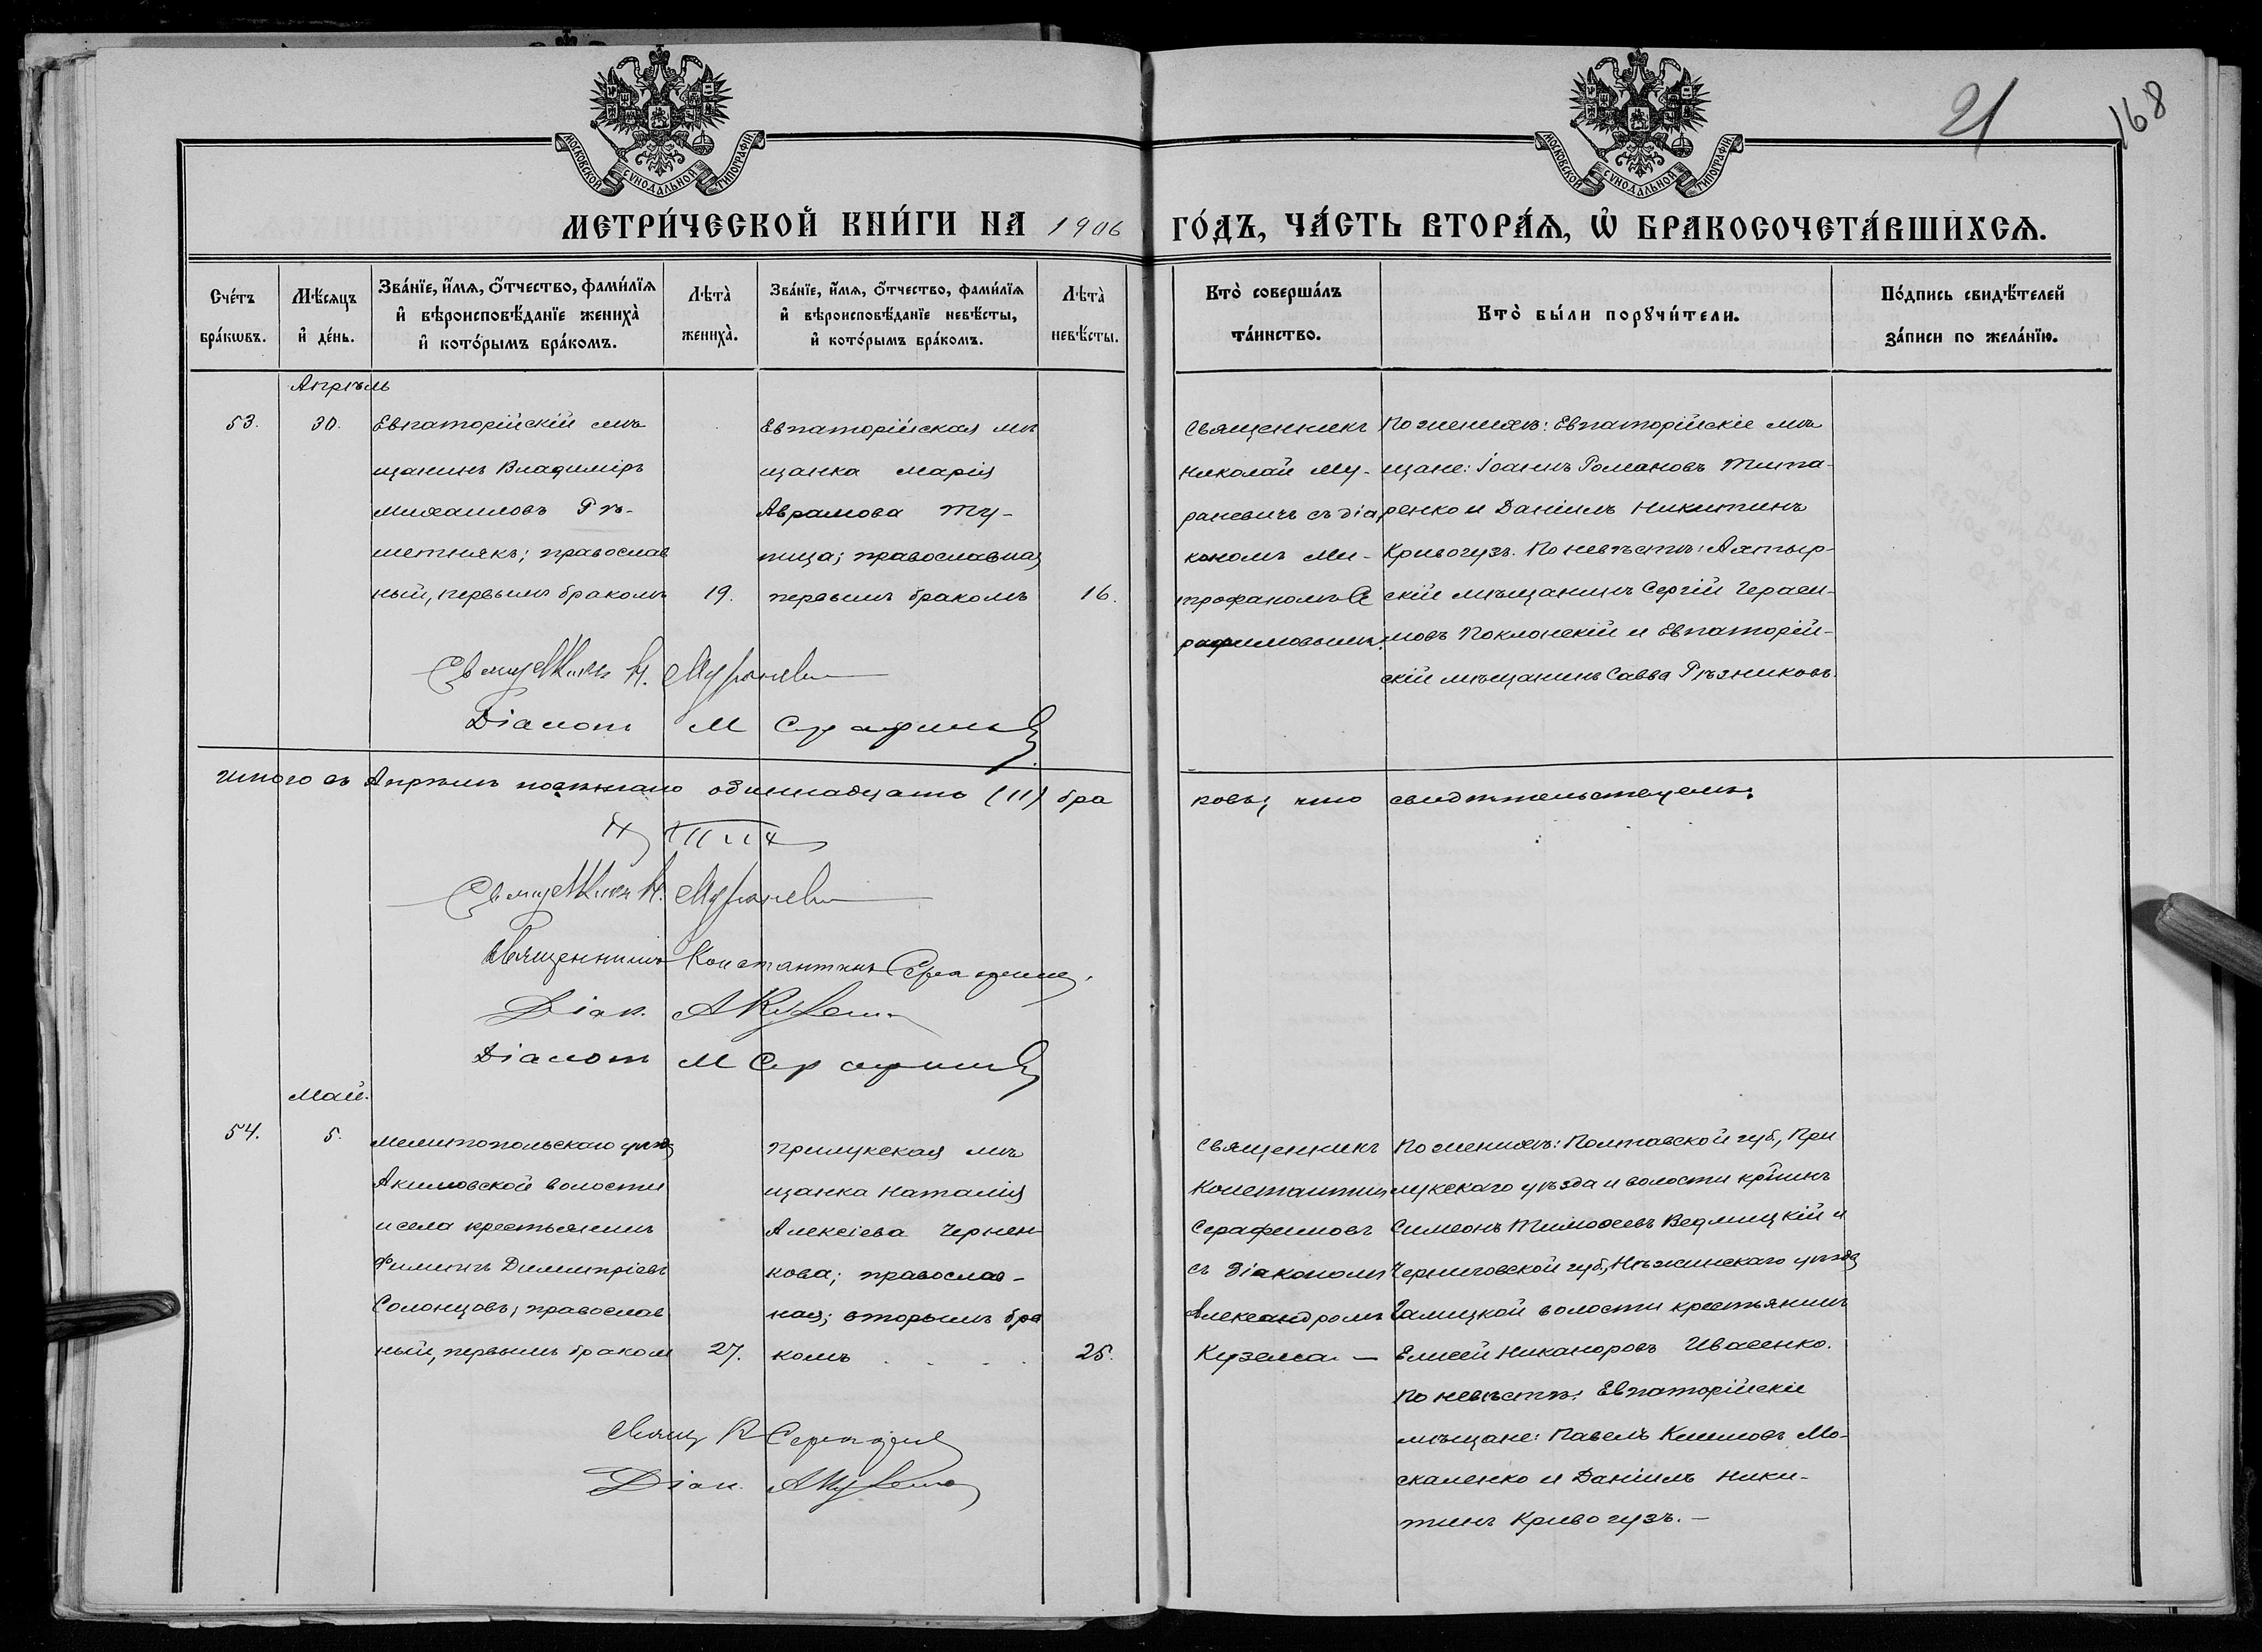 21
168
МОСКОВСКОЙ СѴНОДАЛЬНОЙ ТИПОГРАФІИ
МОСКОВСКОЙ СѴНОДАЛЬНОЙ ТИПОГРАФІИ
МЕТРИ́ЧЕСКОЙ КНИ́ГИ НА 1906 ГО́ДЪ, ЧА́СТЬ ВТОРА́Ѧ, Ѿ БРАКОСОЧЕТА́ВШИХСѦ.
Сче́тъ
бра́кωвъ.
Мѣ́сѧцъ
и҆ де́нь.
Зва́нїе, и҆́мѧ, о҆́тчество, фами́лїѧ
и҆ вѣроисповѣ́данїе жениха̀
и҆ кото́рымъ бра́комъ.
Лѣта̀
жениха̀.
Зва́нїе, и҆́мѧ, о҆́тчество, фами́лїѧ
и҆ вѣроисповѣ́данїе невѣ́сты,
и҆ кото́рымъ бра́комъ.
Лѣта̀
невѣ́сты.
Кто̀ соверша́лъ
та́инство.
Кто̀ бы́ли порꙋчи́тели.
По́дпись свидѣ́телей
за́писи по жела́нїю.
Апрѣль
53.
30.
Евпаторійскій мѣ
щанинъ Владиміръ
Михаиловъ Рѣ-
шетнякъ; православ
ный, первымъ бракомъ
19.
Евпаторійская мѣ
щанка Марія
Аврамова Ту-
пица; православная
первымъ бракомъ
16.
Священникъ
Николай Му-
раневичъ съ діа
кономъ Ми-
трофаномъ Се
рафимовымъ.
По женихѣ: Евпаторійскіе мѣ
щане: Іоаннъ Романовъ Тита-
ренко и Даніилъ Никитинъ
Кривогузъ. По невѣстѣ: Ахтыр-
скій мѣщанинъ Сергій Гераси-
мовъ Поклонскій и Евпаторій-
скій мѣщанинъ Савва Рѣзниковъ.
Священникъ Н. Мураневи
Діаконъ М Серафимов
Итого въ Апрѣлѣ повѣнчано одиннадцать (11) бра
ковъ; что свидѣтельствуемъ:
Священникъ Н. Мураневи
Священникъ Константинъ Серафимов.
Діак. А Кузема
Діаконъ М Серафимов
Май.
54.
5.
Мелитопольскаго уѣзда
Акимовской волости
и села крестьянинъ
Филиппъ Димитріевъ
Солонцовъ; православ
ный, первымъ браком
27.
Прилукская мѣ
щанка Наталія
Алексіева Чернен-
кова; православ-
ная; вторымъ бра
комъ . . . .
25.
Священникъ
Константинъ
Серафимовъ
съ Діакономъ
Александромъ
Кузема. —
По женихѣ: Полтавской губ., При
лукскаго уѣзда и волости кр̃нинъ
Симеонъ Тимоѳеевъ Ведмицкій и
Черниговской губ., Нѣжинскаго уѣзда
Галицкой волости крестьянинъ
Елисей Никаноровъ Ивасенко.
По невѣстѣ: Евпаторійскіе
мѣщане: Павелъ Климовъ Мо-
скаленко и Даніилъ Ники-
тинъ Кривогузъ. —
Свящ К Серафимов
Діак. А Кузема